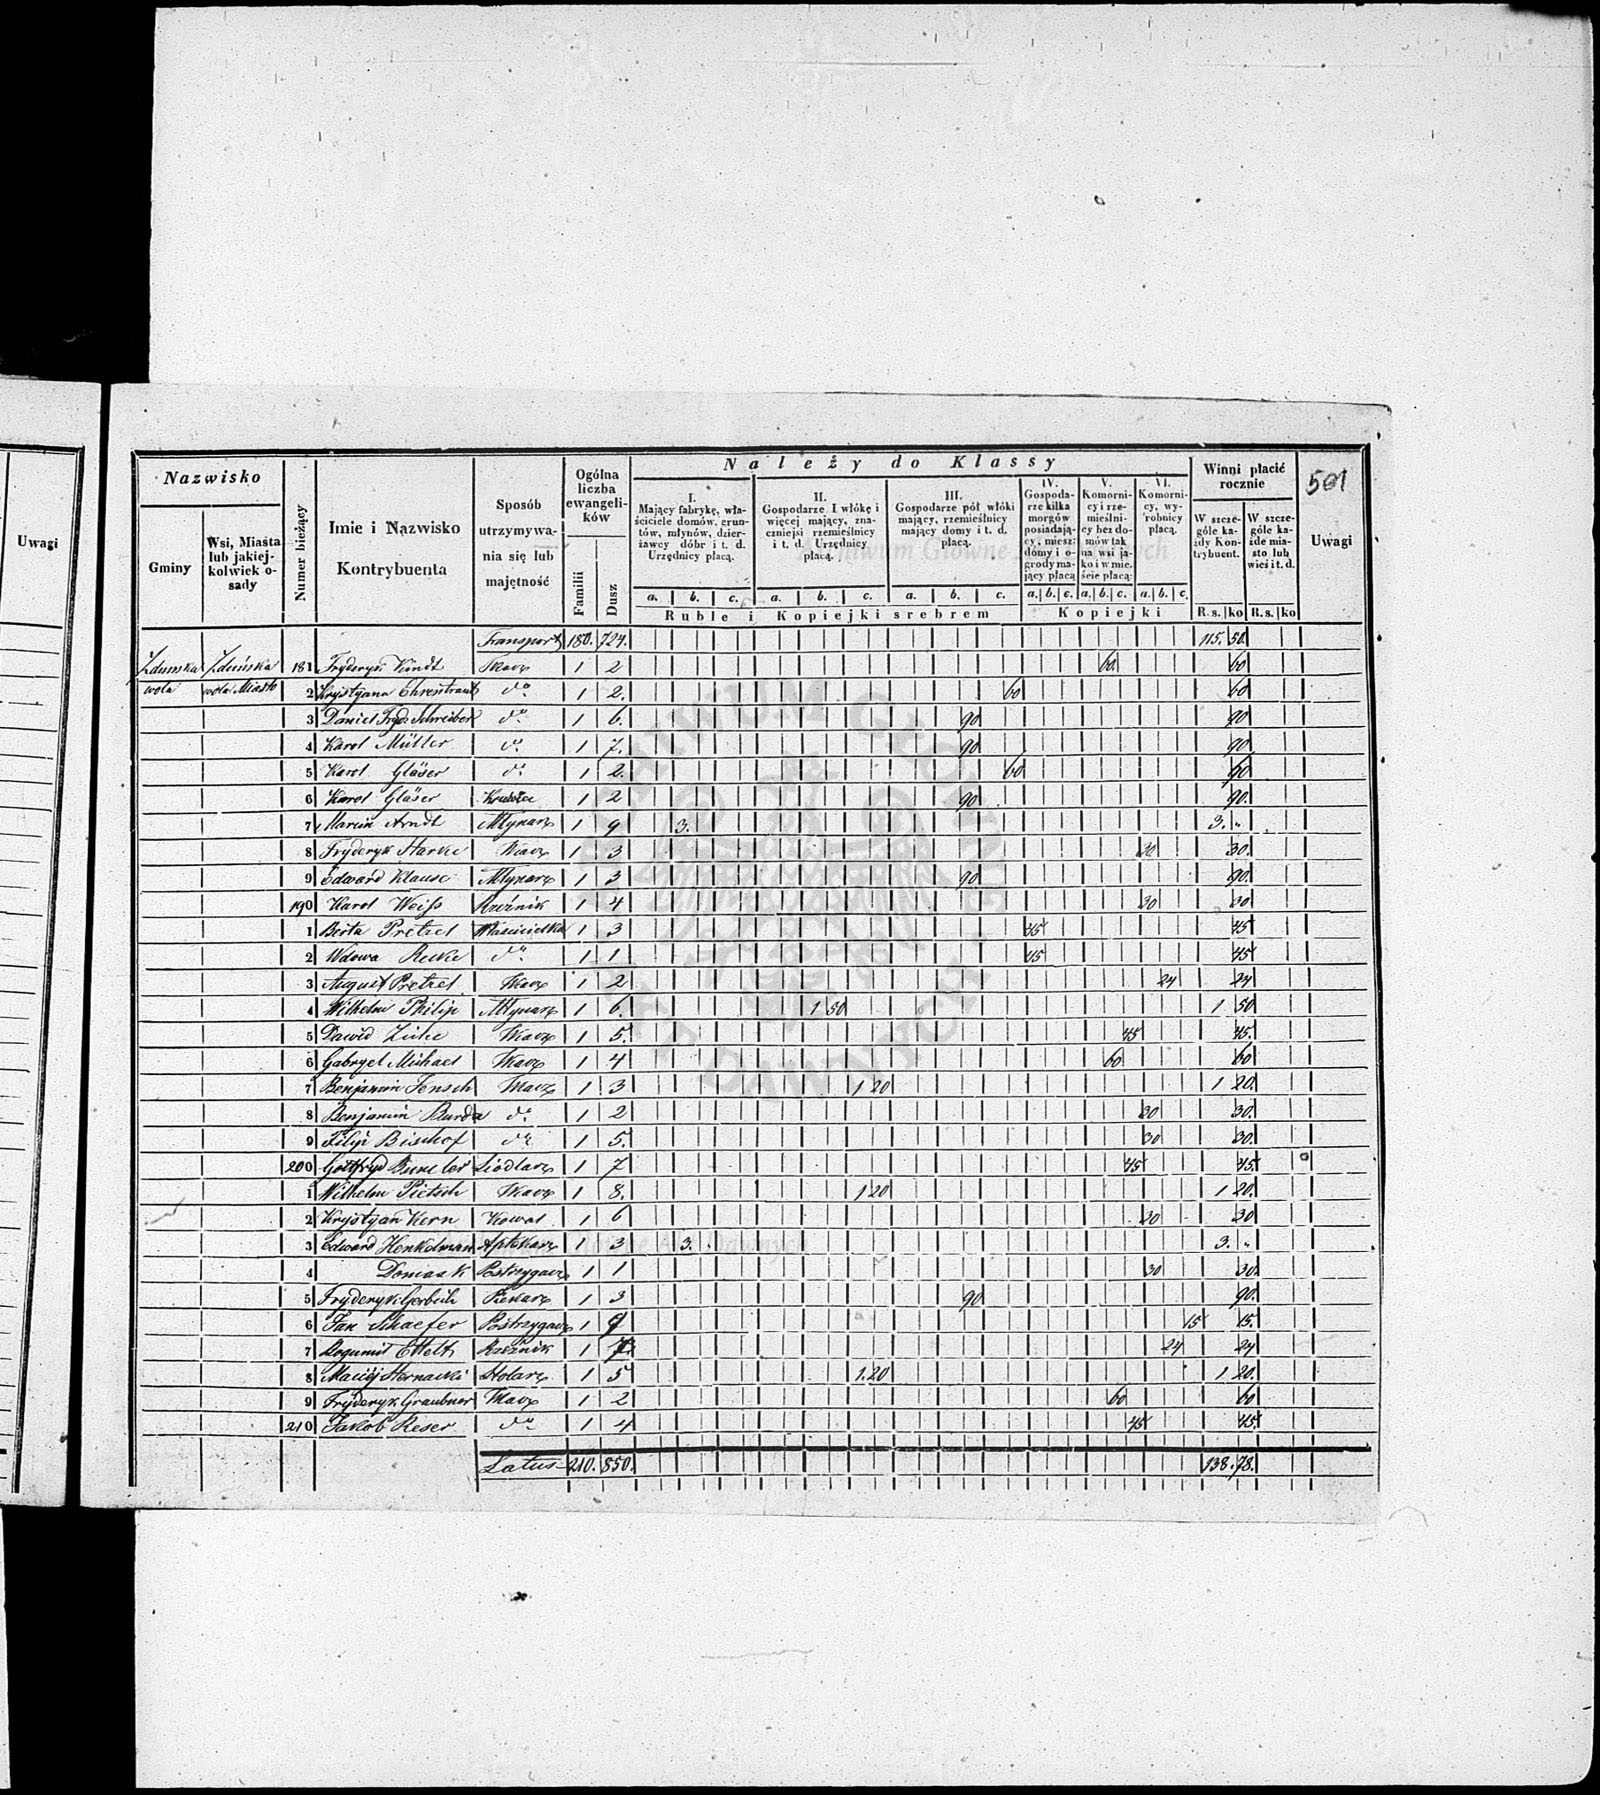 501
Nazwisko
Gminy
Wsi, Miasta lub jakiej- kolwiek o- sady
Numer bieżący
Imie i Nazwisko Kontrybuenta
Sposób utrzymywa- nia się lub majętność
Ogólna liczba ewangeli- ków
Familii
Dusz
Należy do Klassy
I. Mający fabrykę, wła- ściciele domów, grun- tów, młynów, dzier- żawcy dóbr i t. d. Urzędnicy płacą.
II. Gospodarze I włókę i więcej mający, zna- czniejsi rzemieślnicy i t. d. Urzędnicy płacą.
III. Gospodarze pół włóki mający, rzemieślnicy mający domy i t. d. płacą.
IV. Gospoda- rze kilka morgów posiadają- cy, miesz- dómy i o- grody ma- jący płacą
V. Komorni- cy i rze- mieślni- cy bez do- mów tak na wsi ja- ko i w mie. ście płacą:
VI. Komorni- cy, wy- robnicy płacą.
a. b. c. a. b. c. a. b. c. a. b. c. a. b. c. a. b. c.
Ruble i Kopiejki srebrem
Kopiejki
Winni płacić rocznie
W szcze- góle ka- żdy Kon- trybuent.
W szcze- góle ka- żde mia- sto lub wieś i t. d.
R. s. ko R. s. ko
Uwagi
Uwagi
Transport 180. 724. 115. 50.
Zduńska Zduńska 181 Fryderyk Kindt Tkacz 1 2 60. 60
wola wola Miasto 2 Krystyana Ehrentraut do 1 2. 60 60
3 Daniel Fryd Schreiber do 1 6. 90 90
4 Karol Müller do 1 7. 90 90.
5 Karol Gläser do 1 2. 60
6 Karol Gläser 1 2 90 90.
7 Marcin Arndt Młynarz 1 9 3. 3. "
8 Fryderyk Starke Tkacz 1 3 30 30.
9 Edward Klause Młynarz 1 3 90 90.
190 Karol Weiss Rzeźnik 1 4 30 30
1 Berta Pretzel Właścicielka 1 3 45 45
2 Wdowa do 1 1 45 45
3 August Pretzel Tkacz 1 2 24 24
4 Wilhelm Philip Młynarz 1 6. 1 50 1 50
5 Dawid Tkacz 1 5. 45 45.
6 Gabryel Michael Tkacz 1 4 60 60
7 Benjamin Jensch Tkacz 1 3 1 20 1 20.
8 Benjamin Burda do 1 2 30 30.
9 Filip Bischof do 1 5. 30 30.
200 Gottfryd Siodlarz 1 7 45 45
1 Wilhelm Pietsch Tkacz 1 8. 1 20 1 20.
2 Krystyan Kern Kowal 1 6 30 30
3 Edward Henkelman Aptekarz 1 3 3. 3. "
4 Domaak Postrzygacz 1 1 30 30.
5 Fryderyk Gerbich Piekarz 1 3 90 90.
6 Jan Schaefer Postrzygacz 1 15 15.
7 Bogumił Ettelt Rzeźnik 1 24 24
8 Maciéj Stolarz 1 5 1.20 1 20.
9 Fryderyk Graubner Tkacz 1 2 60 60
210 Jakób Reser do 1 4 45 45
Latus 210. 850. 138. 78.